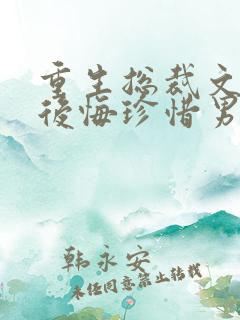 重生总裁文
後悔珍惜男
韩永安
未经同意禁止转载